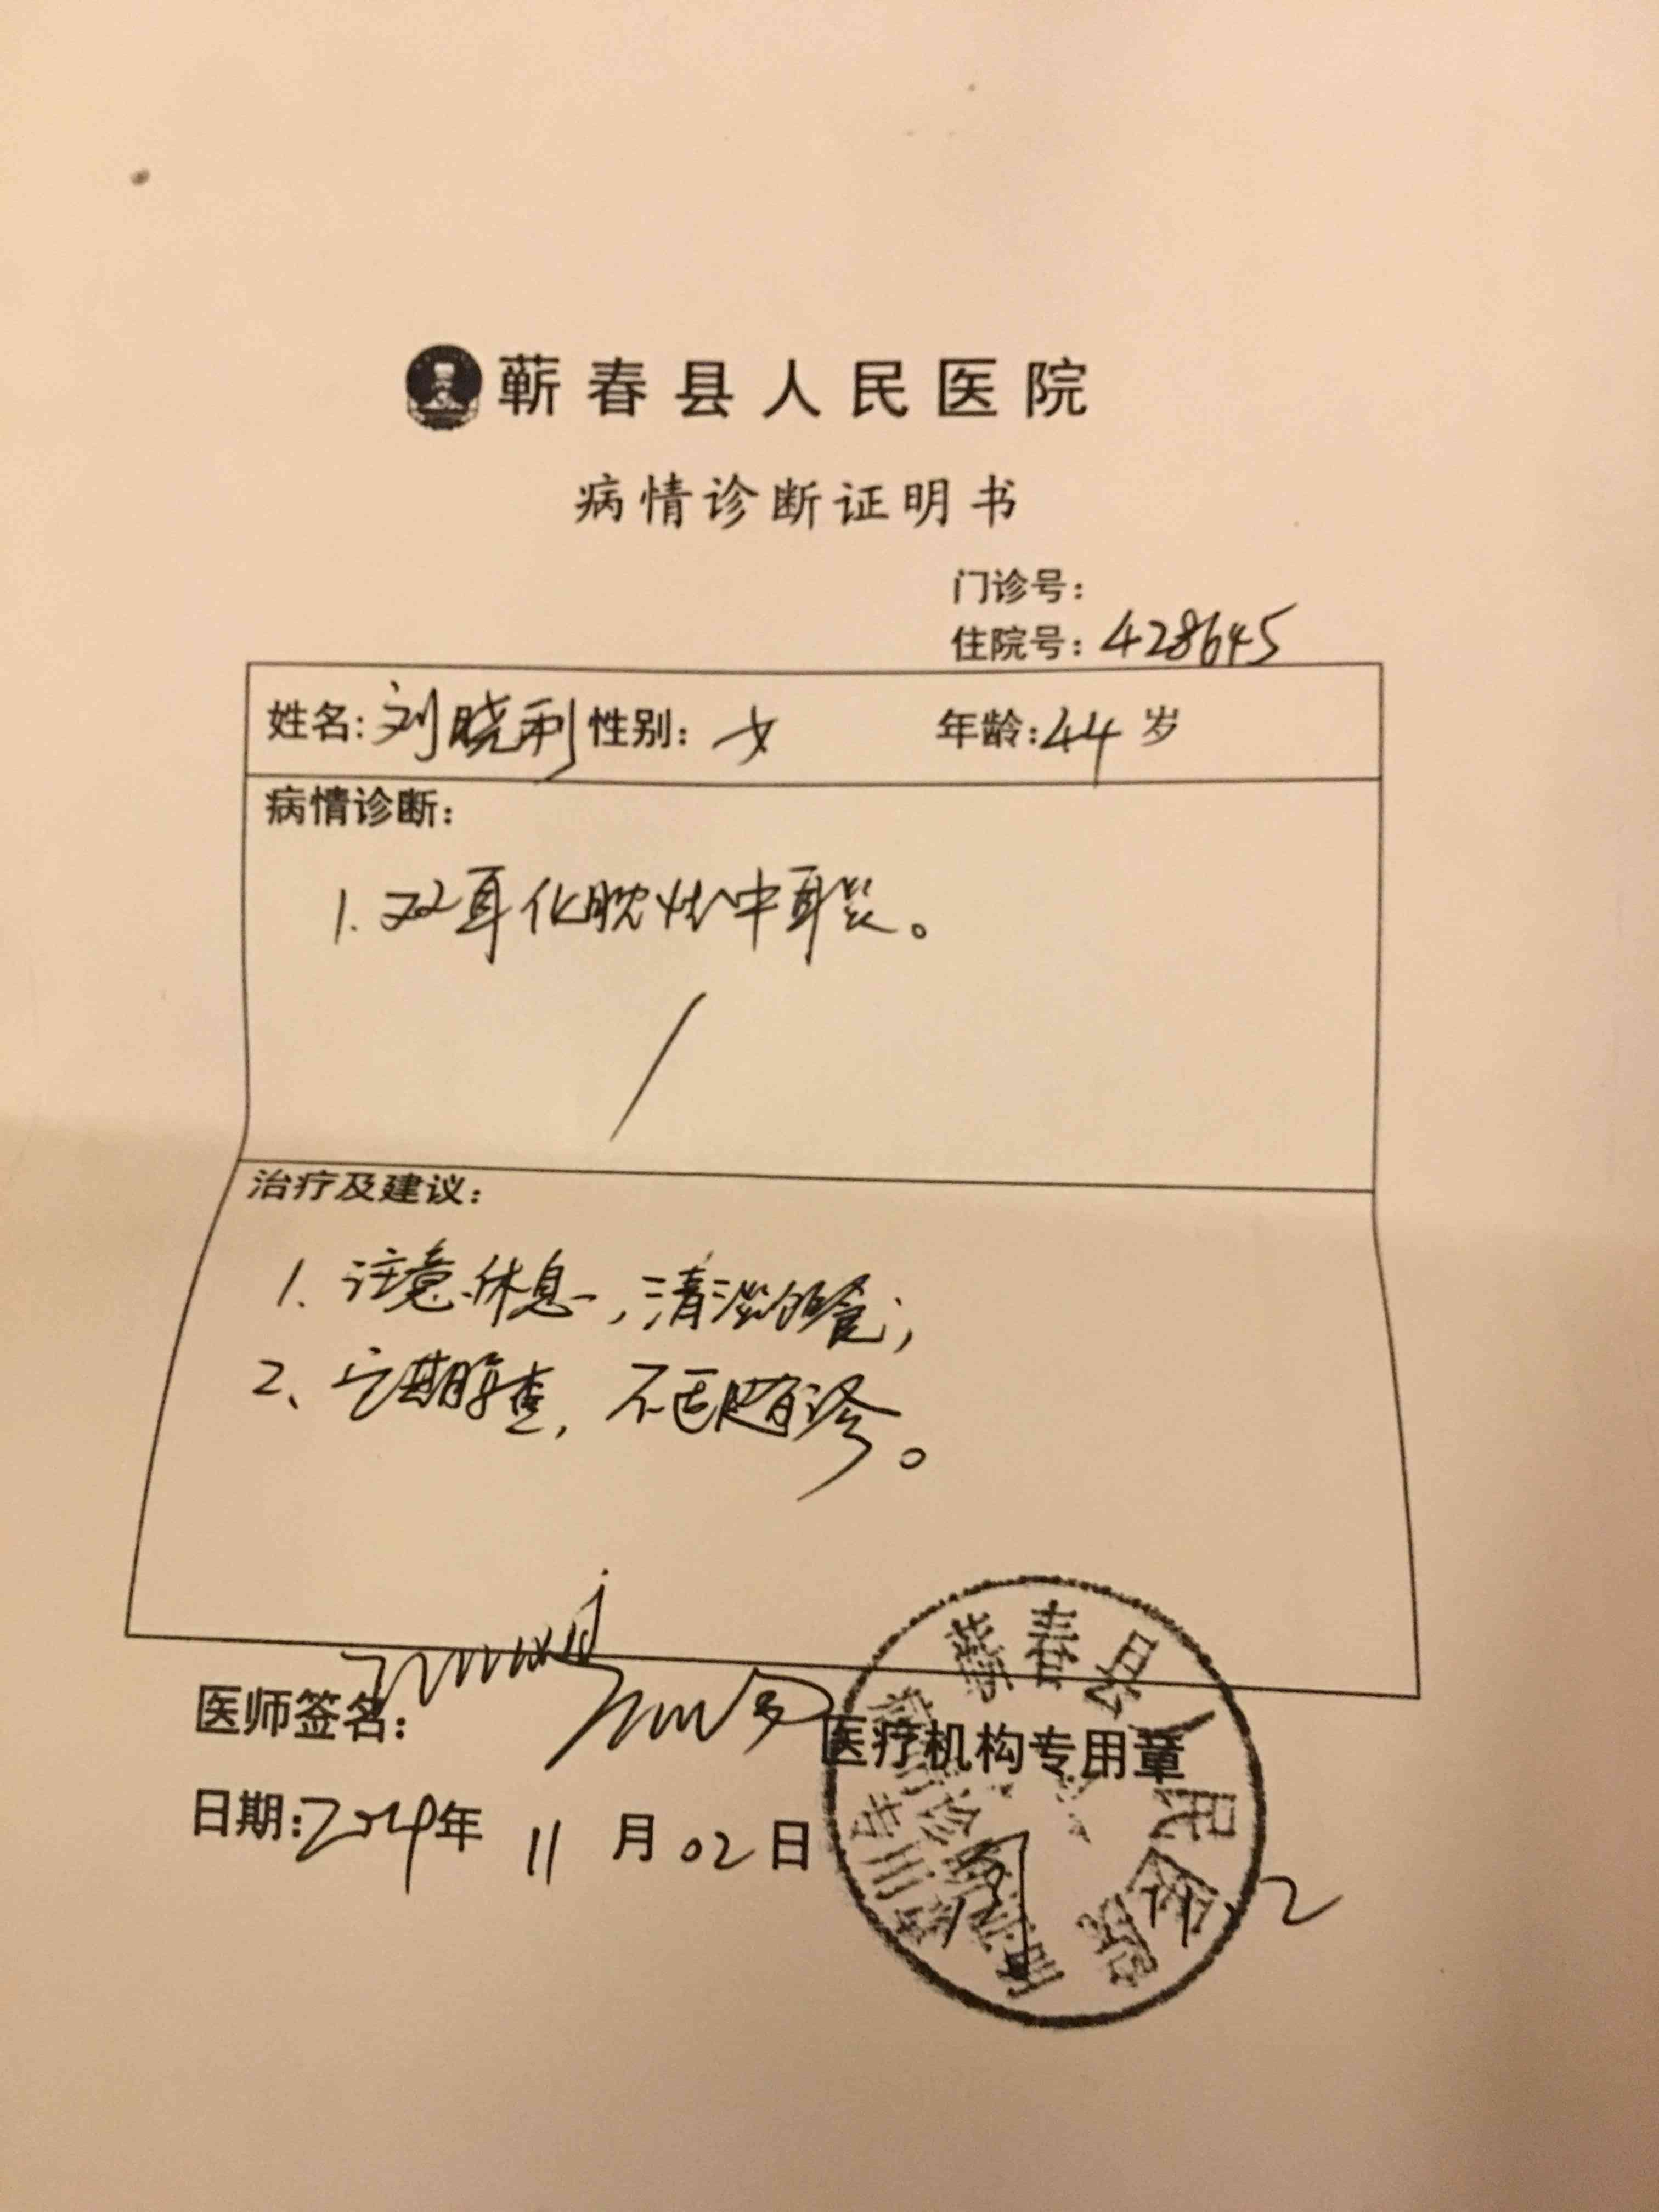 蕲春县人民医院
病情诊断证明书
门诊号：
住院号：428645
姓名：刘晓利 性别：女 年龄：44岁
病情诊断：
1. 双耳化脓性中耳炎。
治疗及建议：
1、注意休息，清淡饮食；
2、定期复查，不适随诊。
医师签名：
医疗机构专用章
日期：2024年11月02日
蕲春县人民医院